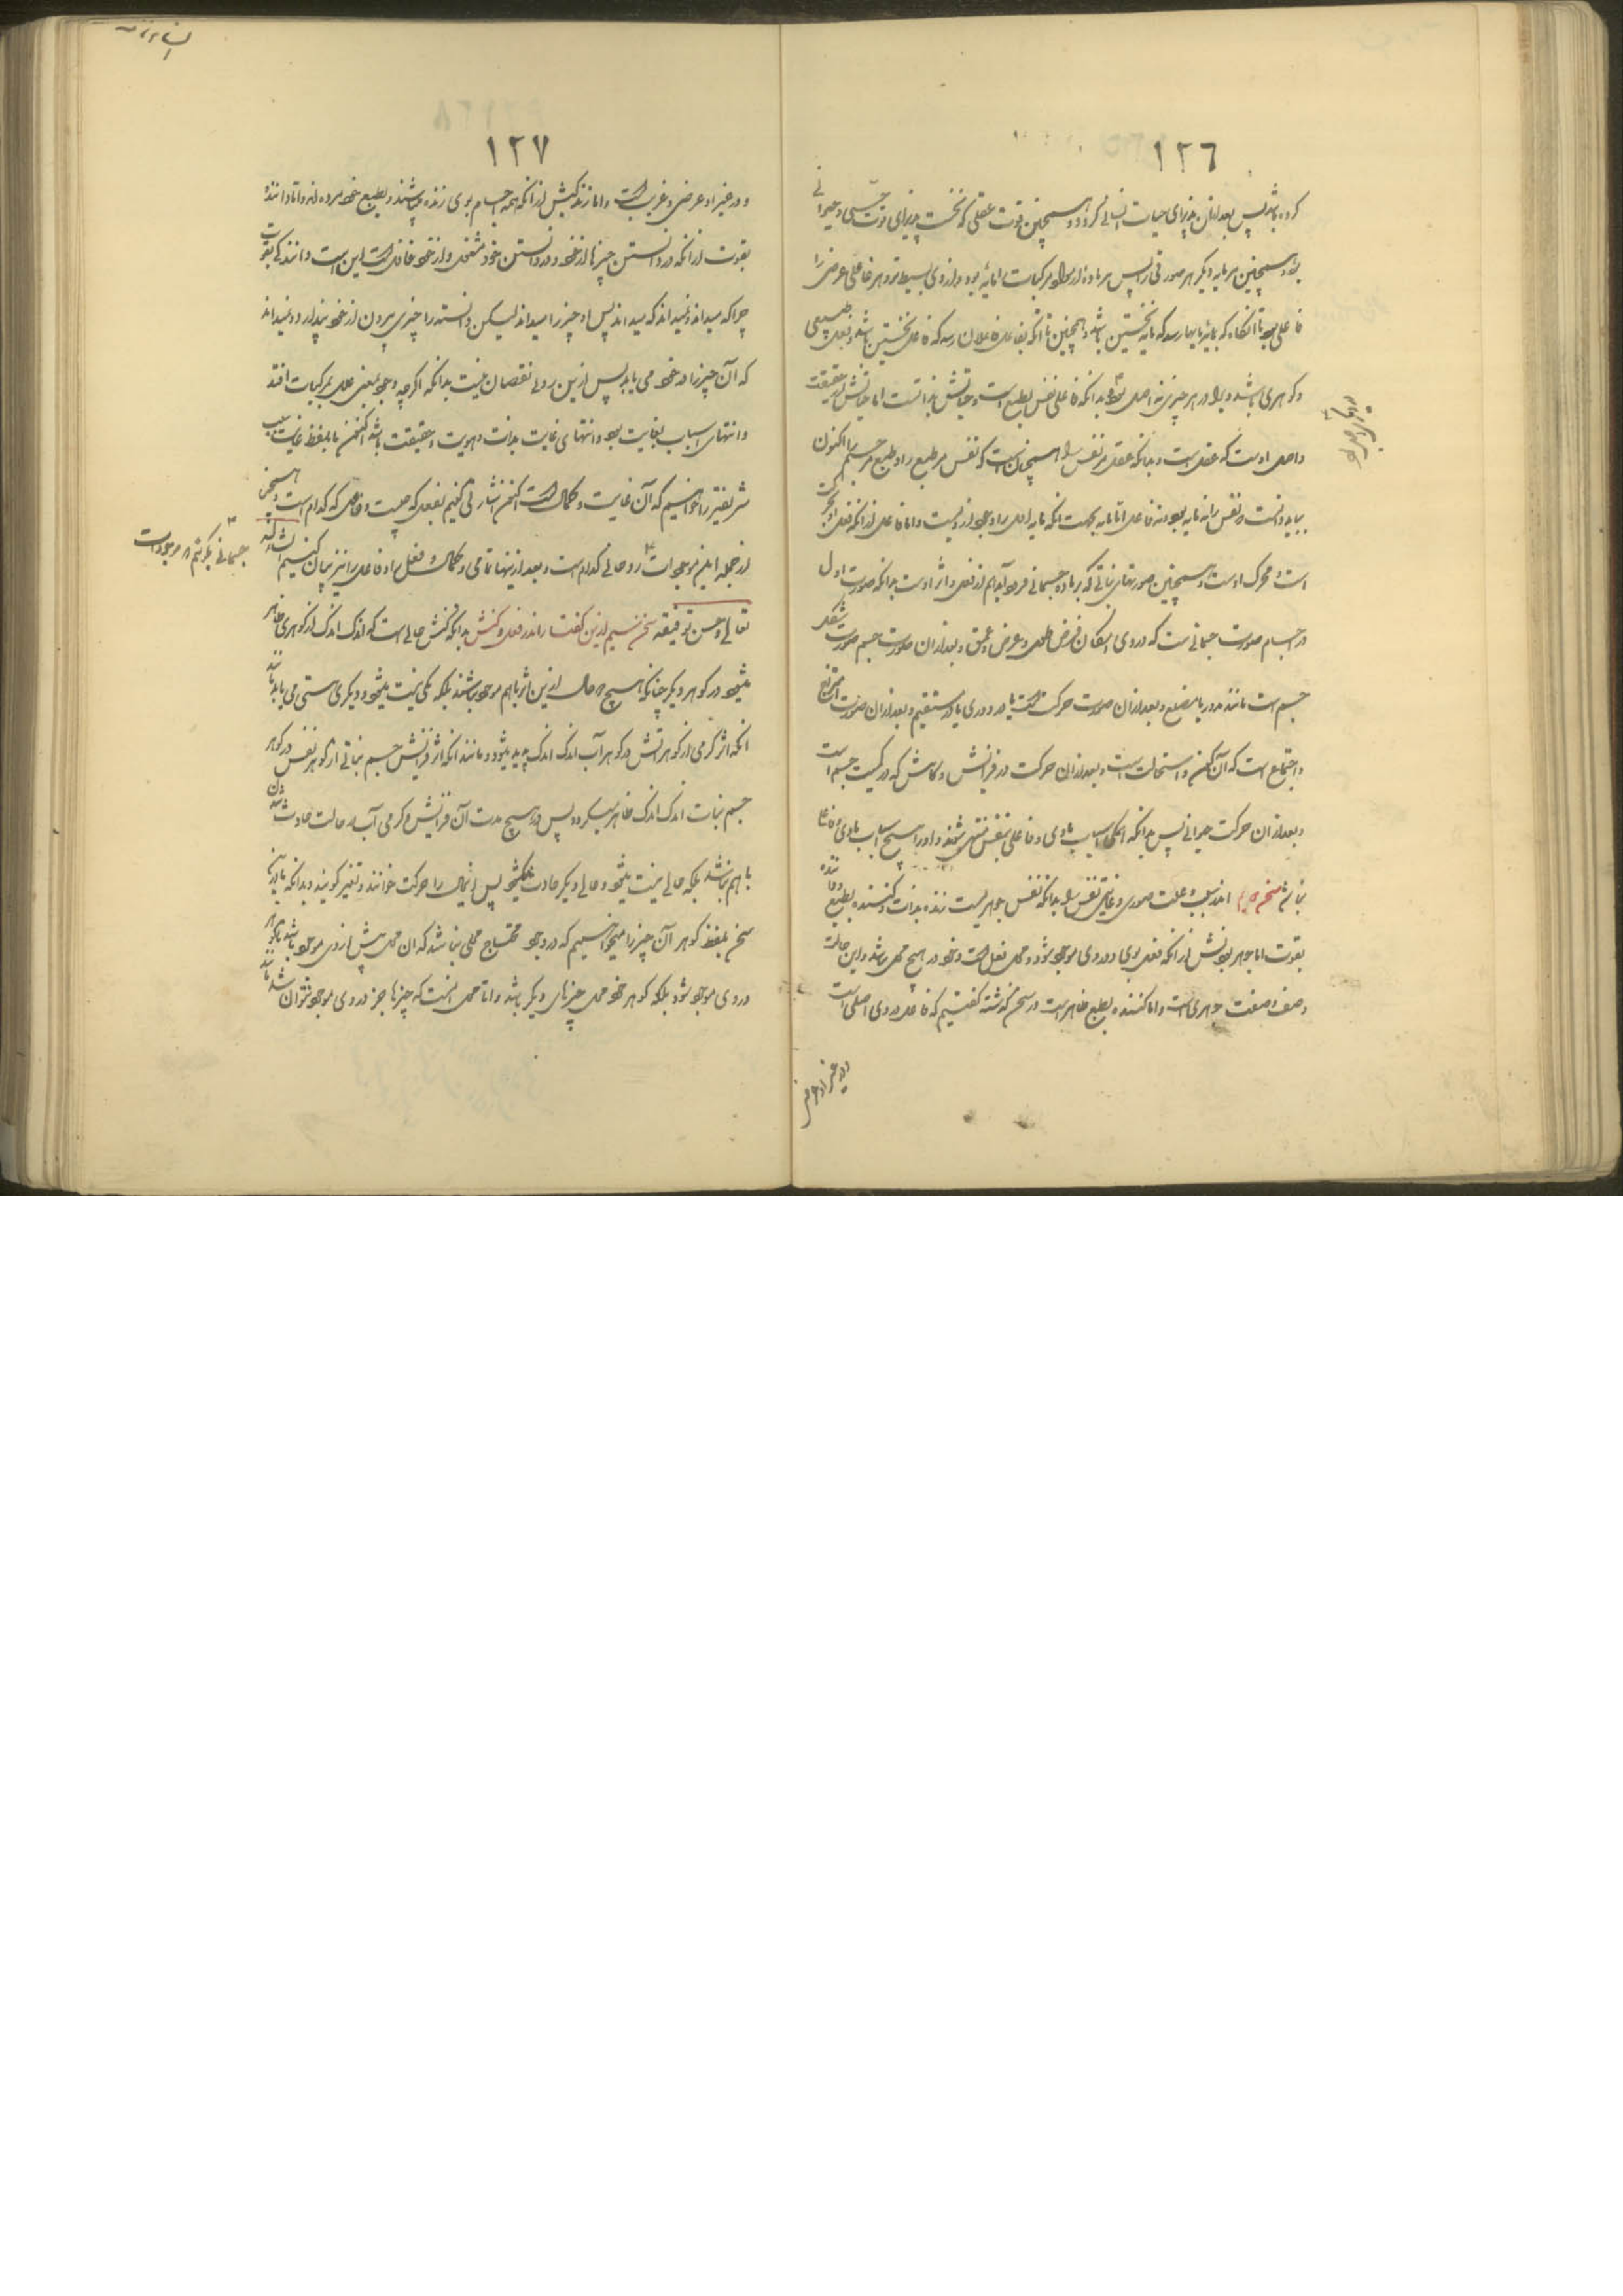 ١٢٦
کرده باشد پس بعد ازان پذیرای حیات انسانی کردد و همچنین قوت عقلی که نخست پذیرای قوت حسی و حیوانی
بود و همچنین هر مایه دیگر هر صورتی را پس هر ماده از مواد مرکبات را مایهٔ بود و از وی بسیط تر و هر فاعلی عرضی را
فاعلی بود تا آنکاه که بمایهٔ مایها رسد که مایه نخستین باشد و همچنین تا آنکه بفاعل فاعلان رسد که فاعل نخستین باشد و بفعل طبیعی
و کوهری باشد و بداند در هر چیزی نه اصلی بدانکه فاعلی نفس بطبع است و حیاتش بذاتست اما حیاتش در حقیقت
و اصلی اوست که عقل است و بدانکه عقل مر نفس را همچنان است که نفس مر طبع را و طبع مر جسم را اکنون
بباید دانست که نفس را نه مایه بود و نه فاعل اما مایه بجهت آنکه مایه اول را وجود از ویست و اما فاعل از آنکه فعل او حرکت
است و محرک اوست و همچنین صورتهای نباتی که بر ماده جسمانی فرود آید هم از فعل و اثر اوست بدانکه صورت اول
در اجسام صورت جسمانی است که در وی امکان فرض طول و عرض و عمق و بعد ازان صورت جسم صورت شکل
جسم است مانند مدور یا مضلع و بعد ازان صورت حرکت است یا در دوری یا در مستقیم و بعد ازان صورت امتزاج
و اجتماع است که آن کون و استحالت است و بعد ازان حرکت در فزایش و کاهش که در کمیت جسم است
و بعد ازان حرکت حیوانی پس بدانکه همکی اسباب مادی و فاعلی بنفس منتهی شوند و او را هیچ اسباب مادی و فاعلی
نباشد سخن اندر سبب و علت صوری و غایتی نفس را بدانکه نفس جوهریست زنده بذات و کننده بطبع و داننده
بقوت اما جوهر بودنش از آنکه فعل بوی و در وی موجود شود و محل فعل است و خود در هیچ محل نباشد و این حالت
وصف و صفت جوهری است و اما کننده بطبع ظاهر است در سخن کذشته کفتیم که فاعل در وی اصلی است
و در غیر او عرضی
١٢٧
و در غیر او عرضی و غریب است و اما زندکیش از آنکه همه اجسام بوی زنده باشند و بطبع خود مرده اند و اما دانندهٔ
بقوت از آنکه در دانستن چیزها از خود و در دانستن خود مشغول و از خود غافل است این است دانندکی بقوت
چرا که میداند و نمیداند که میداند پس او چیز را میداند لیکن دانسته را چیزی بیرون از خود پندارد و نمیداند
که آن چیز را در خود می یابد پس ازین روی نقصان نیست بدانکه اکرچه وجود بعضی علل بمرکبات افتد
و انتهای اسباب بغایت بود و انتهای غایت بذات و هویت و حقیقت باشد اکنون ما بلفظ غایت سبب
شریفتر را خواهیم که آن غایت و کمال است اکنون اشارتی کنیم بفعل که چیست و فاعل که کدام است و همچنین
از جمله این موجودات روحانی کدام است و بعد از ینها تمامی و کمال و فعل را و فاعل را نیز بیان کنیم انشاء الله
تعالی و حسن توفیقه سخن سیم ازین کفتار اندر فعل و کنش بدانکه کنش حالی است که اندک اندک از کوهری ظاهر
میشود در کوهر دیکر چنانکه هیچ دو حال ازین اثر با هم موجود نباشند بلکه یکی نیست میشود و دیکری هستی می یابد مانند
آنکه اثر کرمی از کوهر آتش در کوهر آب اندک اندک پدید میشود و مانند آنکه اثر فزایش جسم نباتی از کوهر نفس در کوهر
جسم نبات اندک اندک ظاهر میکردد پس در هیچ مدت آن فزایش و کرمی آب دو حالت حادث شدن
با هم نباشد بلکه حالی نیست میشود و حالی دیکر حادث میشود پس این حال را حرکت خوانند و تغیر کویند و بدانکه ما درین
سخن بلفظ کوهر آن چیز را میخواهیم که در وجود محتاج محلی نباشد که آن محل پیش از وی موجود باشد
در وی موجود شود بلکه کوهر خود محل چیزهای دیکر باشد و اما محل آنست که چیزها جز در وی موجود نتوان شد مانند
جسمانی بکوئیم از موجودات